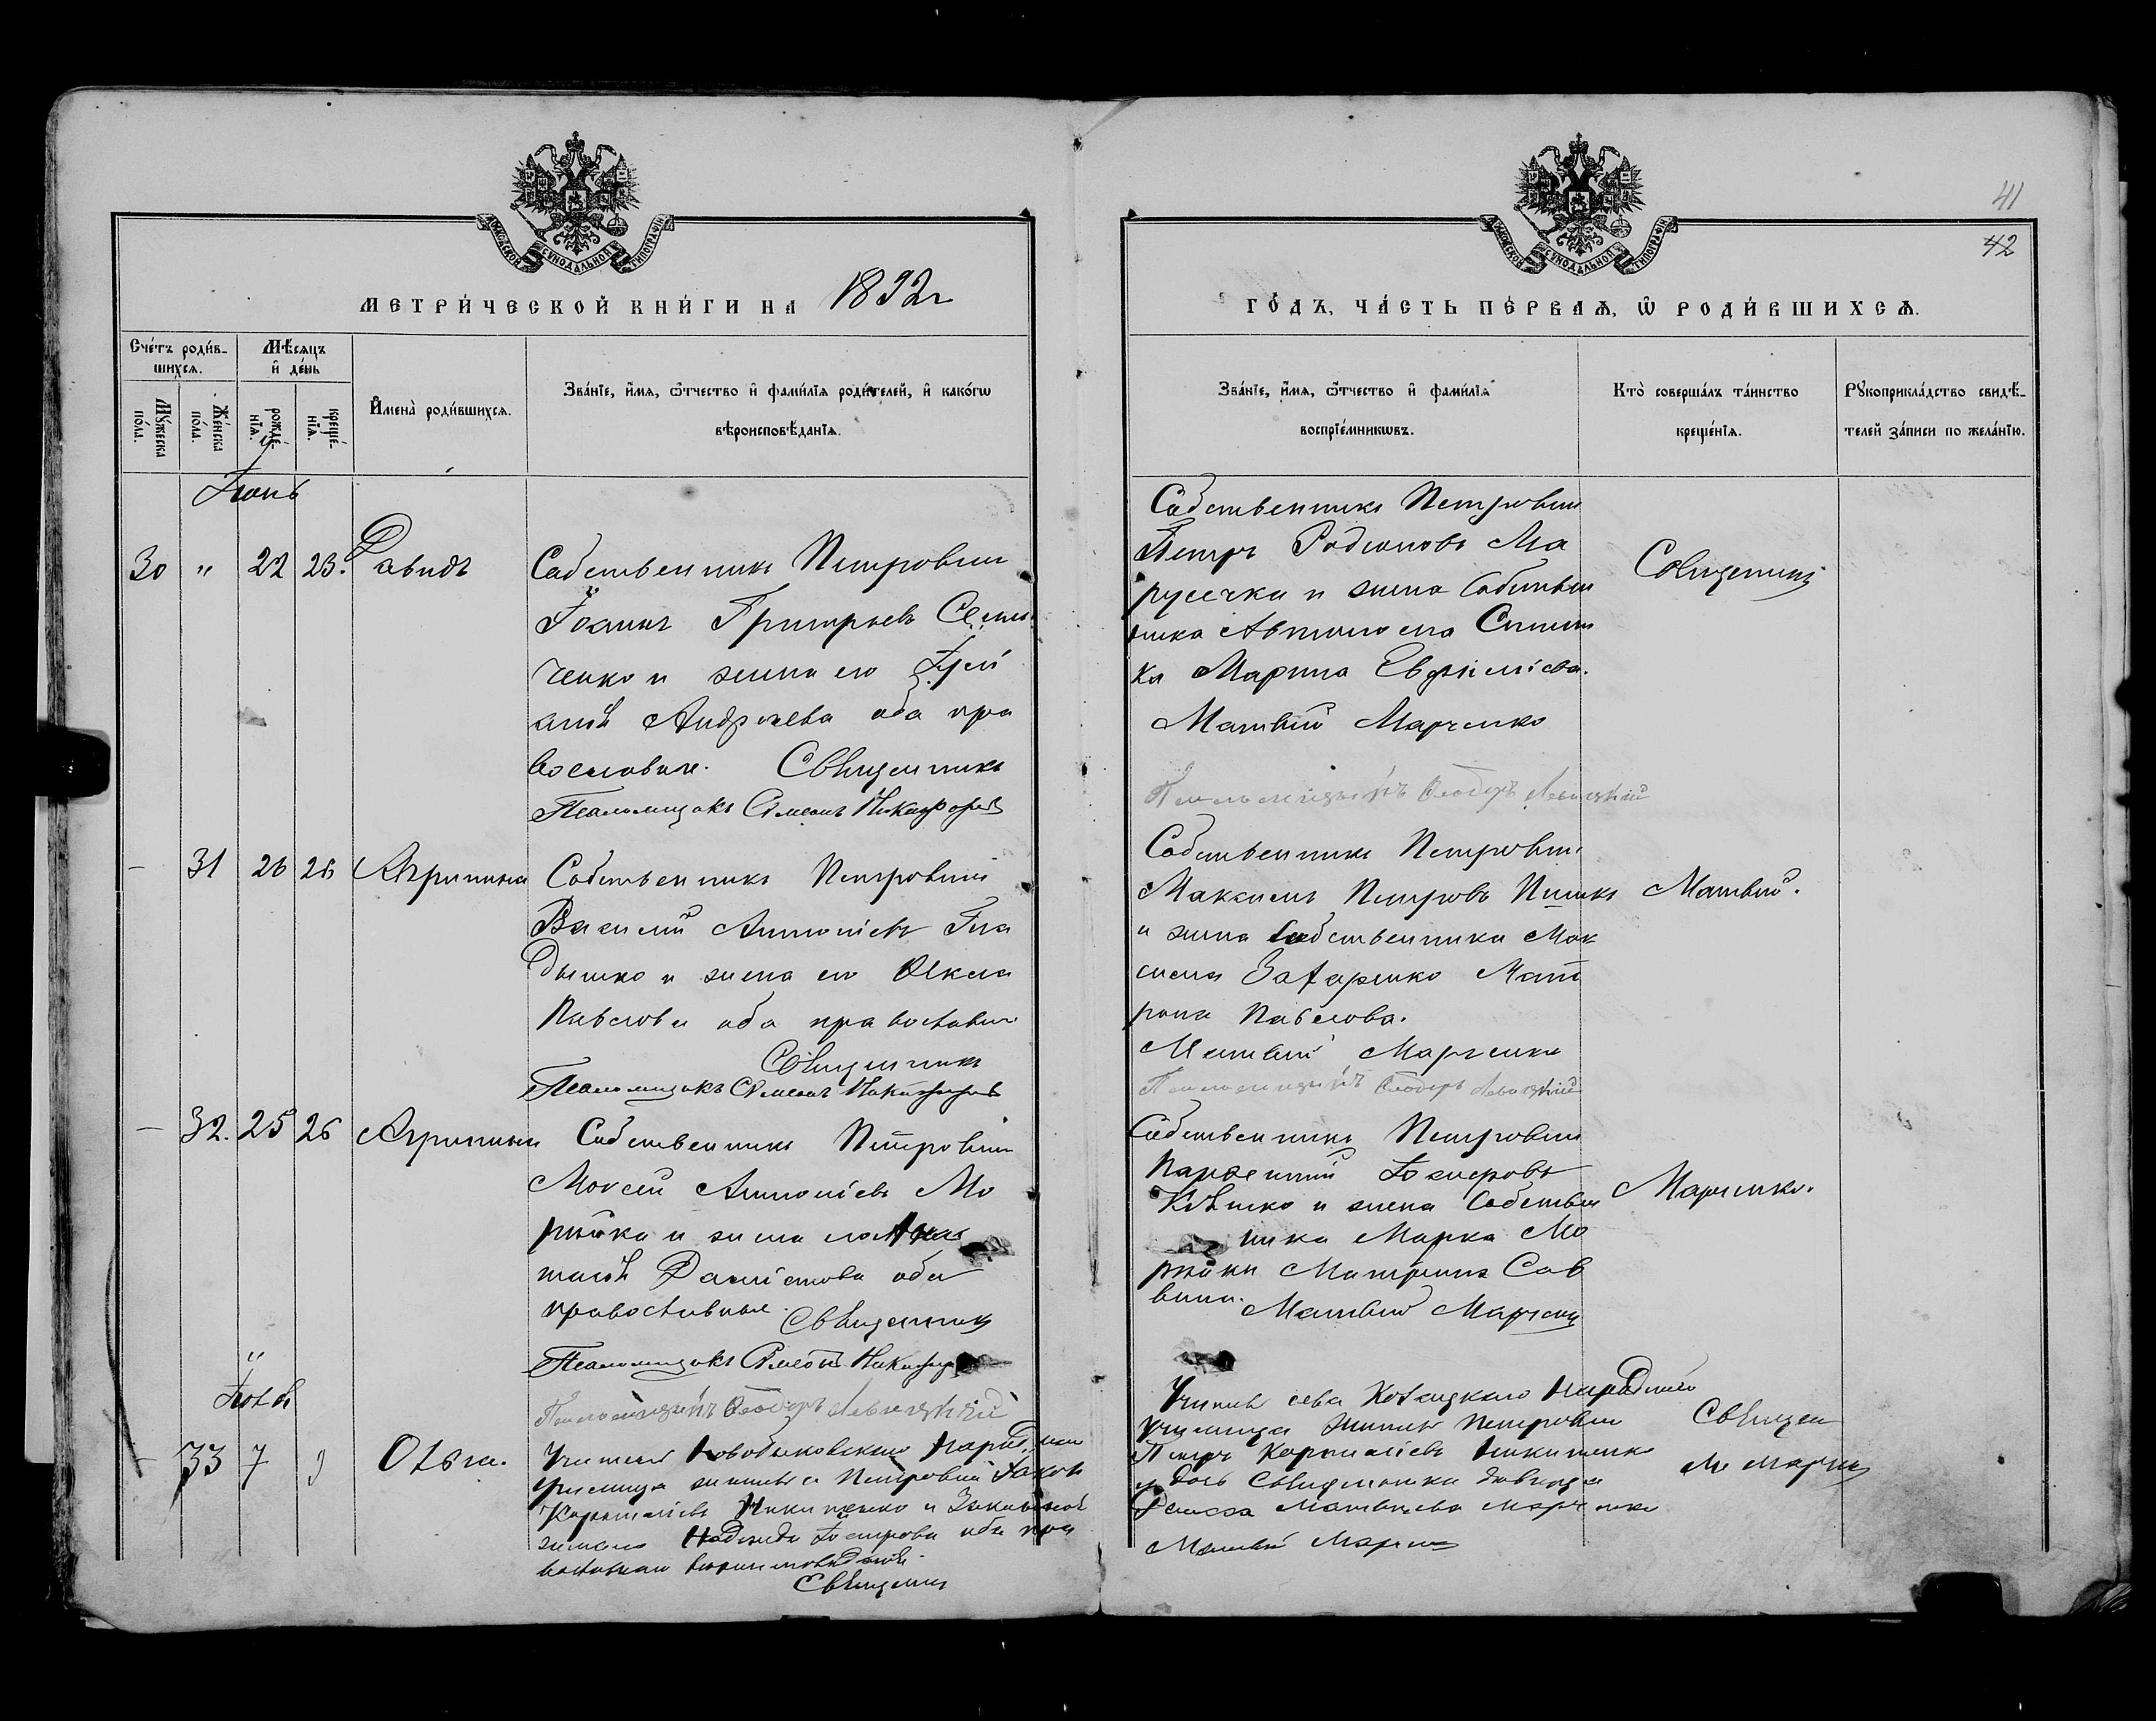 41
42
МОСКОВСКОЙ СѴНОДАЛЬНОЙ ТИПОГРАФІИ
МОСКОВСКОЙ СѴНОДАЛЬНОЙ ТИПОГРАФІИ
МЕТРИ́ЧЕСКОЙ КНИ́ГИ НА 1892 г
ГО́ДЪ, ЧА́СТЬ ПЕ́РВАѦ, Ѡ҆ РОДИ́ВШИХСѦ.
Сче́тъ роди́вшихсѧ.
Мѣ́сѧцъ и҆ де́нь
Мꙋ́жеска по́ла.
Же́нска по́ла.
рожде́нїѧ.
креще́нїѧ.
И҆мена̀ роди́вшихсѧ.
Зва́нїе, и҆́мѧ, ѻ҆́тчество и҆ фами́лїѧ роди́телей, и҆ како́гѡ
вѣроисповѣ́данїѧ.
Зва́нїе, и҆́мѧ, ѻ҆́тчество и҆ фами́лїѧ
воспрїе́мникѡвъ.
Кто̀ соверша́лъ та́инство
креще́нїѧ.
Рꙋкоприкла́дство свидѣ́телей за́писи по жела́нїю.
Іюнь
30 " 22 23. Давидъ
Собственникъ Петровки
Іоаннъ Григорьевъ Семи
ченко и жена его
Андреева оба пра
вославные. Священникъ
Псаломщикъ Симеонъ Никифоровъ
Собственникъ Петровки
Петръ Родионовъ Ма
русечка и жена Собствен
ника Автонома
ка Марина Евфиміева.
Матвѣй Марченко
Священникъ
Псаломщикъ Ѳеодоръ Левицкій
— 31 26 26 Агрипина
Собственникъ Петровки
Василій Антоніевъ Гла
дышко и жена его Ѳекла
Павлова оба православн.
Священникъ
Псаломщикъ Симеонъ Никифоровъ
Собственникъ Петровки
Максимъ Петровъ
и жена Собственника Мак
сима Захаренко Мат
рона Павлова.
Матвѣй Марченко
Матвѣй.
Псаломщикъ Ѳеодоръ Левицкій
— 32. 25 26 Агрипина
Собственникъ Петровки
Моисей Антоніевъ Мо
и жена его Анас
тасія Даніилова оба
православные. Священникъ
Псаломщикъ Симеонъ Никифоровъ
Псаломщикъ Ѳеодоръ Левицкій
Собственникъ Петровки
Парѳеній
и жена Собствен
ника Марка Мо
Матрона Сав
вина. Матвѣй Марченко
Марченко.
Іюль
— 33 7 9 Ольга.
Учитель Новобыковскаго Народнаго
училища житель с Петровки Іаковъ
Корнилієвъ Никитенко и Законная
жена его Надежда Петрова оба пра
вославнаго вѣроисповѣданія.
Священник
Учитель села народнаго
училища житель Петровки
Петръ Корнилієвъ Никитенко
и дочь Священника
Раисса Матвѣева Марченко
Матвѣй Марченко
Священ
М Марченк